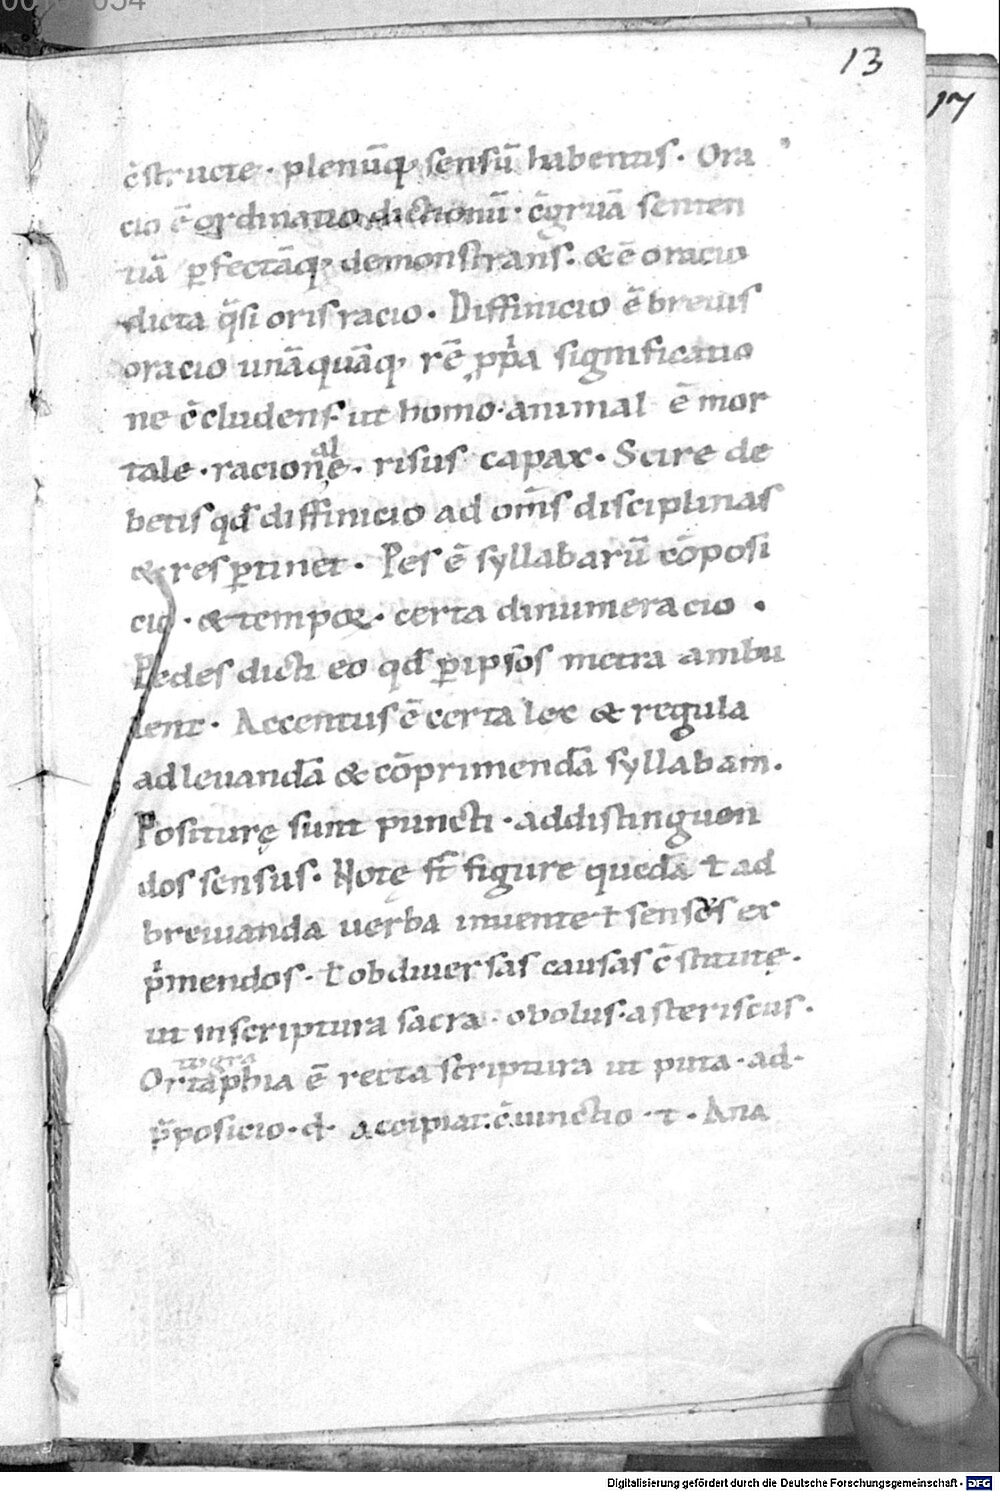 13
17
c̄structe · plenūq; sensū habentis · Ora
cio ē ordinatio dictionū · c̄gruā senten
tiā ꝑfectāq; demonstrans · & ē oracio
dicta q̄si oris racio · Diffinicio ē breuis
oracio unāquāq; rē ꝓpͥa significatio
ne c̄cludens · ut homo · animal ē mor
tale · racione · risus capax · Scire de
al
betis qđ diffinicio ad om̄s disciplinas
& res ꝑtinet · Pes ē syllabarū cōposi
cio · & tempoꝝ · certa dinumeracio ·
Pedes dicti eo qđ ꝑ ipsos metra ambu
lent · Accentus ē certa lex & regula
ad leuandā & cōprimendā syllabam ·
Positurę sunt puncti · ad distinguen
dos sensus · Notę st̄ figure quedā ł ad
breuianda uerba inuente ł sensus ex
pͥmendos · ł ob diuersas causas c̄stitutę ·
ut in scriptura sacra · obolus · asteriscus ·
togra
Ortaphia ē recta scriptura ut puta · ad ·
p̄posicio · d · accipiat · c̄iunctio · t · Ana
Digitalisierung gefördert durch die Deutsche Forschungsgemeinschaft - DFG